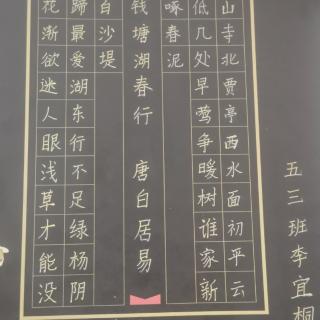 钱塘湖春行 唐白居易
山寺北贾亭西水面初平云
低几处早莺争暖树谁家新
啄春泥
花渐欲迷人眼浅草才能没
蹄最爱湖东行不足绿杨阴
白沙堤
五三班李宜桐